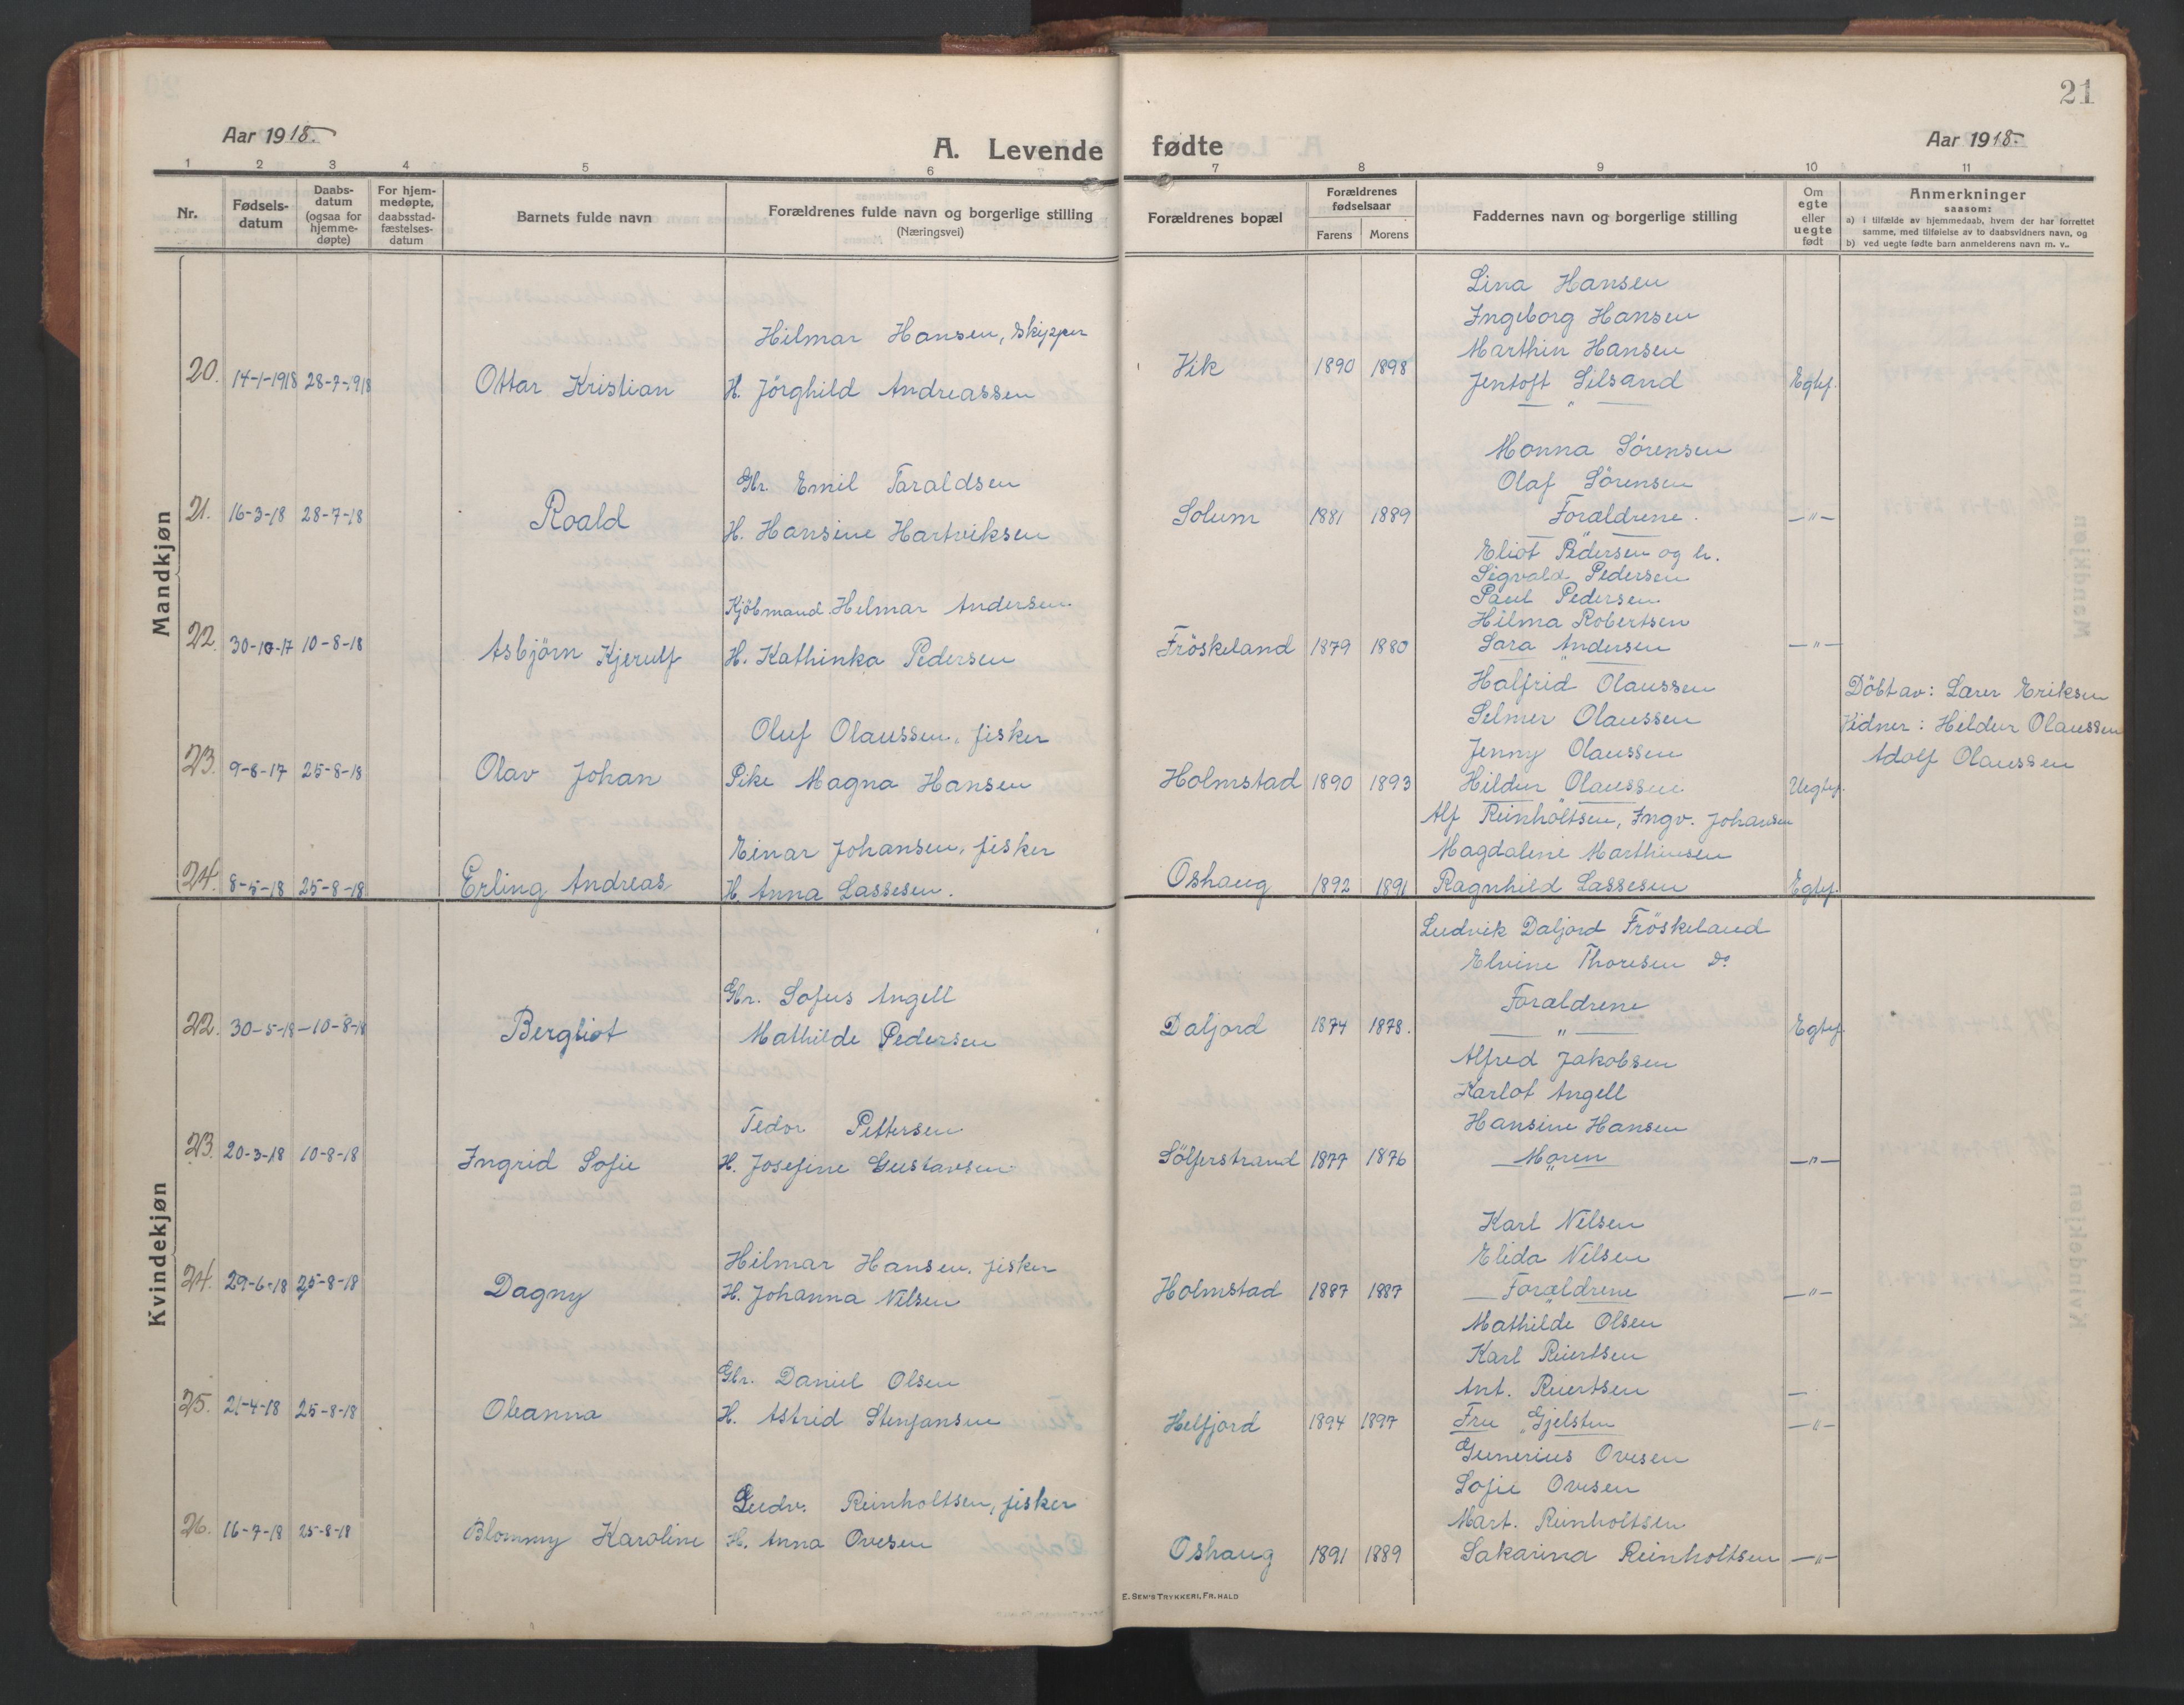 21
Aar 1918.
A. Levende fødte
Aar 1918.
1 2 3 4 5 6 7 8 9 10 11
Nr.
Fødsels-
datum
Daabs-
datum
(ogsaa for
hjemme-
døpte)
For hjem-
medøpte,
daabsstad-
fæstelses-
datum
Barnets fulde navn
Forældrenes fulde navn og borgerlige stilling
(Næringsvei)
Forældrenes bopæl
Forældrenes
fødselsaar
Farens Morens
Faddernes navn og borgerlige stilling
Om
egte
eller
uegte
født
Anmerkninger
saasom:
a) i tilfælde av hjemmedaab, hvem der har forrettet
samme, med tilføielse av to daabsvidners navn, og
b) ved uegte fødte barn anmelderens navn m. v..
Mandkjøn
Lina Hansen
Ingeborg Hansen
Hilmar Hansen, skipper
Marthin Hansen
20. 14-1-1918 28-7-1918 Ottar Kristian H. Jörghild Andreassen Vik 1890 1898 Jentoft Silsand Egtef.
— " —
Monna Sørensen
Gbr. Emil Taraldsen Olaf Sørensen
21. 16-3-18 28-7-18 Roald H. Hansine Hartviksen Solum 1881 1889 Forældrene. — " —
Eliot Pedersen og h.
Sigvald Pedersen
Kjöbmand Helmar Andersen. Paul Pedersen.
Hilma Robertsen
22. 30-10-17 10-8-18 Asbjörn Kjerulf H. Kathinka Pedersen Fröskeland 1879 1880 Sara Andersen — " —
Halfrid Olaussen Döbt av: Lærer Eriksen
Selmer Olaussen Vidner: Hildur Olaussen
Oluf Olaussen, fisker Jenny Olaussen Adolf Olaussen
23. 9-8-17 25-8-18 Olav Johan Pike Magna Hansen Holmstad 1890 1893 Hildur Olaussen Uegtef.
Alf Reinholtsen, Ingv. Johansen
Einar Johansen, fisker Magdaline Marthinsen
24. 8-5-18 25-8-18 Erling Andreas H. Anna Lassesen. Oshaug 1892 1891 Ragnhild Lassesen Egtef.
Kvindekjøn
Ludvik Daljord Fröskeland
Elvine Thoresen Do
Gbr. Sofus Angell Forældrene
22. 30-5-18 – 10-8-18 Bergliot Mathilde Pedersen Daljord 1874 1878. — " — Egtef.
Alfred Jakobsen
Karlot Angell
Tedor Pettersen Hansine Hansen
23. 20-3-18 10-8-18 Ingrid Sofie H. Josefine Gustavsen Sölferstrand 1877 1876 Moren — " —
Karl Nilsen
Hilmar Hansen, fisker Elida Nilsen
24. 29-6-18 25-8-18 Dagny H. Johanna Nilsen Holmstad 1887 1887 Forældrene — " —
Mathilde Olsen
Karl Reiertsen
Gbr. Daniel Olsen Ant. Reiertsen —
25. 21-4-18 25-8-18 Oleanna H. Astrid Stenjansen Helfjord 1894 1897 Fru Gjelsten — " —
Gunerius Ovesen
Sofie Ovesen
Ludv. Reinholtsen, fisker Mart. Reinholtsen
26. 16-7-18 25-8-18 Blommy Karoline H. Anna Ovesen Oshaug 1891 1889 Sakarina Reinholtsen — " —
E. SEM'S TRYKKERI, FR. HALD